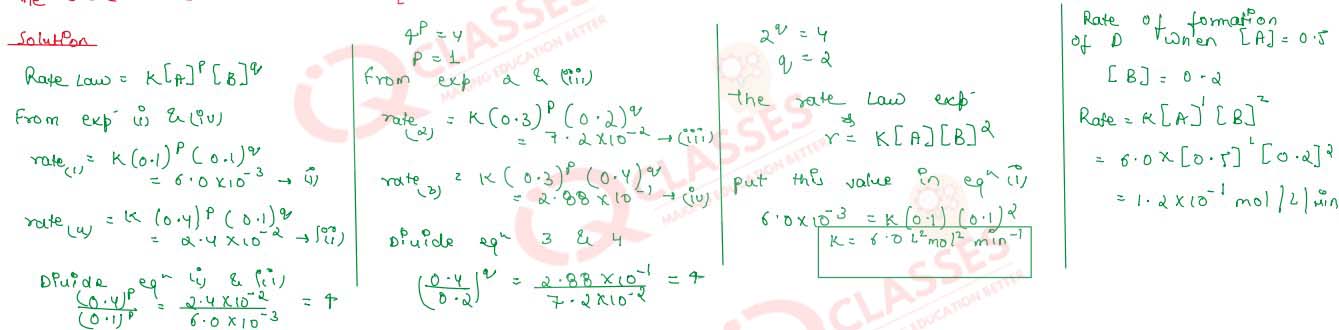 the
Solution
Rate Law = K[A]^p [B]^q
From exp (i) & (iv)
rate(1) = K(0.1)^p (0.1)^q
= 6.0 × 10^-3 → (i)
rate(4) = K (0.4)^p (0.1)^q
= 2.4 × 10^-2 → (ii)
Divide eqn (i) & (ii)
(0.4)^p / (0.1)^p = 2.4 × 10^-2 / 6.0 × 10^-3 = 4
4^p = 4
p = 1
From exp 2 & (iii)
rate(2) = K(0.3)^p (0.2)^q
= 7.2 × 10^-2 → (iii)
rate(3) = K(0.3)^p (0.4)^q
= 2.88 × 10^-1 → (iv)
Divide eqn 3 & 4
(0.4 / 0.2)^q = 2.88 × 10^-1 / 7.2 × 10^-2 = 4
2^q = 4
q = 2
The rate Law exp
is
r = K[A][B]^2
put this value in eqn (i)
6.0 × 10^-3 = K(0.1) (0.1)^2
K = 6.0 L^2 mol^2 min^-1
Rate of formation
of D when [A] = 0.5
[B] = 0.2
Rate = K[A]^1 [B]^2
= 6.0 × [0.5]^1 [0.2]^2
= 1.2 × 10^-1 mol/L/min
IQ CLASSES
MAKING EDUCATION BETTER
IQ CLASSES
MAKING EDUCATION BETTER
IQ CLASSES
EDUCATION BETTER